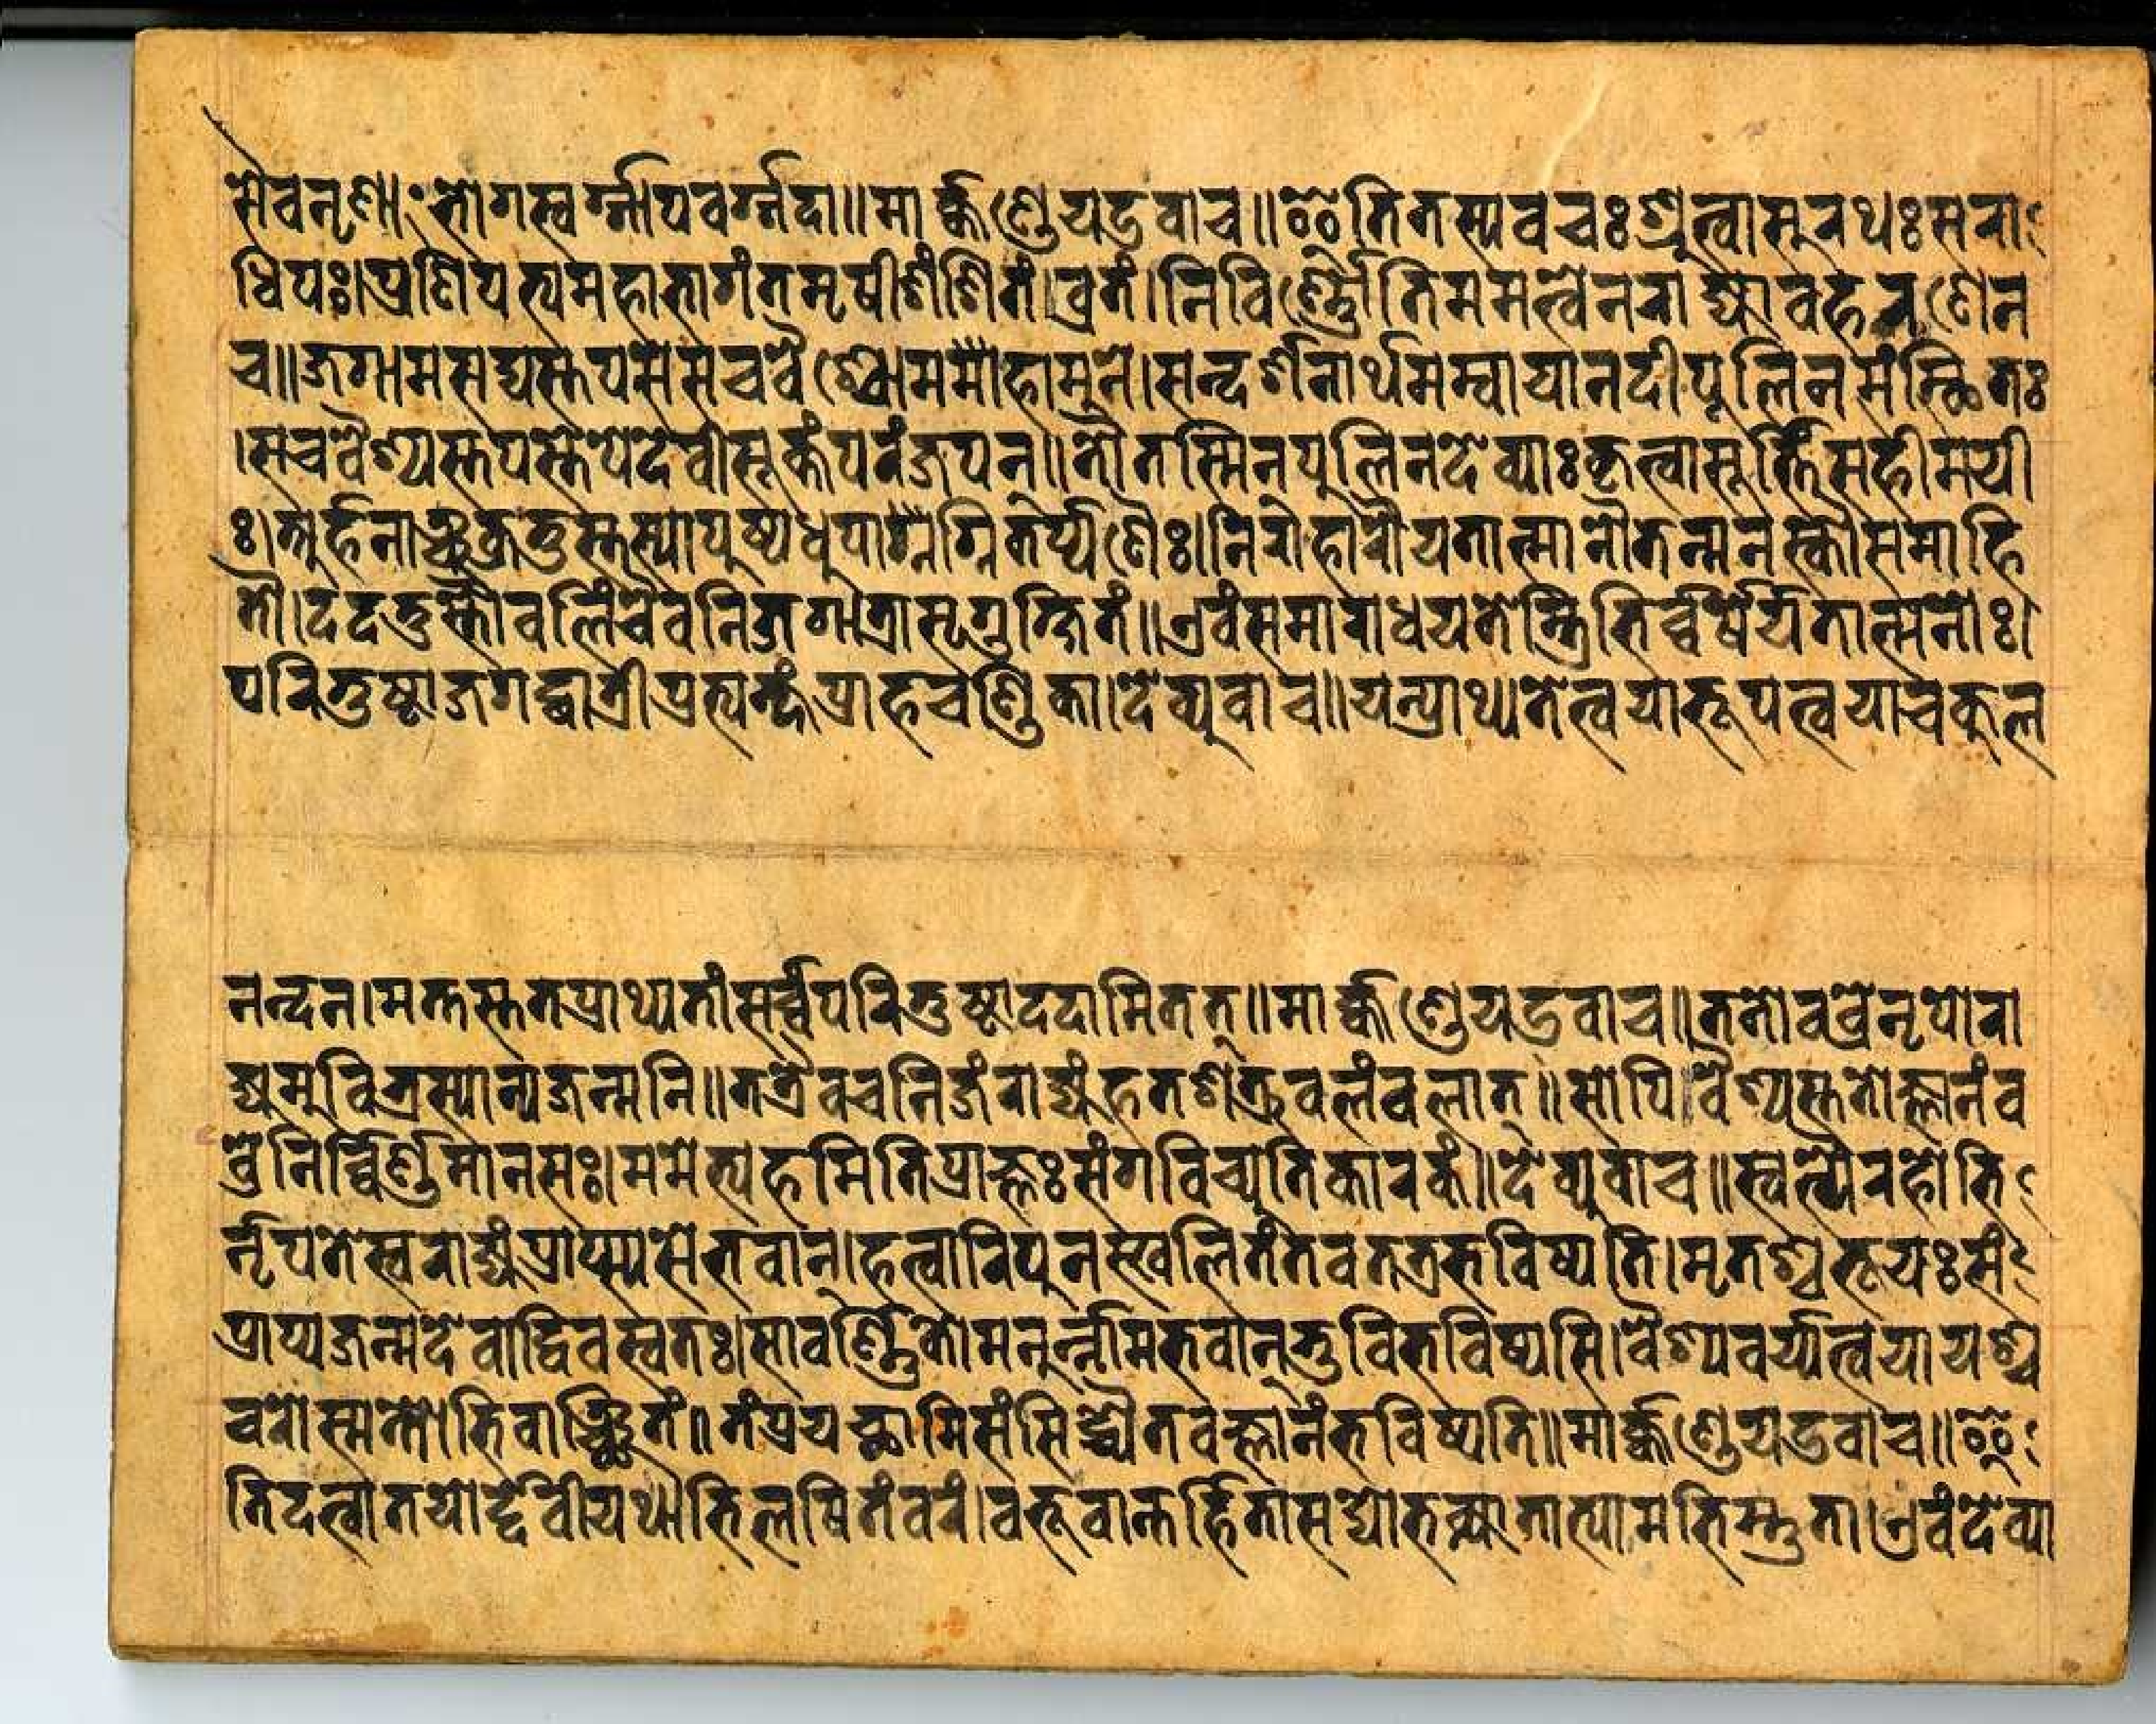 सैवनृणां भोगस्वर्ग्गापवर्ग्गदा॥मार्क्कण्डेयउवाच॥इतितस्यवचःश्रुत्वासुरथःसरा
धिपः।प्रणिपत्यमहाभागंतमृषीशंशितंव्रतं।निविर्ण्णोतिममत्वेनराज्यावहरणेन
च॥जगामसद्यस्तपसेसचवैश्योममौहामुने।सन्दर्शनार्थमम्बायानदीपुलिनमंस्थितः
।सचवैश्यस्तपस्तेपेदेवीसूक्तंपरंजपन्॥तौतस्मिनपुलिनदेव्याःकृत्वामूर्त्तिंमहीमयी
ः।अर्हनाञ्चक्रतुस्तस्यापुष्पधुपाग्नाग्नितर्प्पणैः।निराहारौयतात्मानौतन्मनस्कौसमाहि
तौ।ददतुस्तौवलिंचैवनिजगात्रासृगुक्षितं॥एवंसमाराधयतेस्त्रिभिर्व्वर्षैर्यतात्मनोः।
परितुष्टाजगद्धात्रीप्रत्यक्षंप्राहचण्डिका।देव्युवाच॥यत्प्राथ्यतेत्वयाभूपत्वयाचकुल
नन्दन।मत्तस्ततप्राथ्यतांसर्व्वंपरितुष्टाददामितत्॥मार्क्कण्डेयउवाच॥ततोवव्रेनृपोरा
ज्यमविभ्रस्यान्यजन्मनि॥तत्रैवचनिजंराज्यंहतशत्रुवलंवलात्॥सोपिवैश्यस्ततोज्ञानंव
व्रेनिर्व्विर्ण्णमानसः।ममेत्यहमितिप्राज्ञःसंगविच्युतिकारकं॥देव्युवाच॥स्वल्पैरहोभि
र्नृपतेस्वराज्यंप्राप्स्यसेभवान्।हत्वारिपुनस्खलितंतवतत्रभविष्यति।मृतश्चभूयःसं
प्राप्यजन्मदेवाद्विवस्वतः।सावर्ण्णिकोमनुर्न्नामभवान्भुविभविष्यसि।वैश्यवर्य्यत्वयायश्च
वरोस्मत्तोभिवाञ्छितं॥तंप्रयच्छामिसंसिद्ध्यैतवज्ञानंभविष्यति॥मार्क्कण्डेयउवाच॥इ
तिदत्वातयोर्द्देवीयथाभिलषितंवरं।वभूवान्तर्हितासद्योभक्त्याताभ्यामभिस्तुता।एवंदेव्या